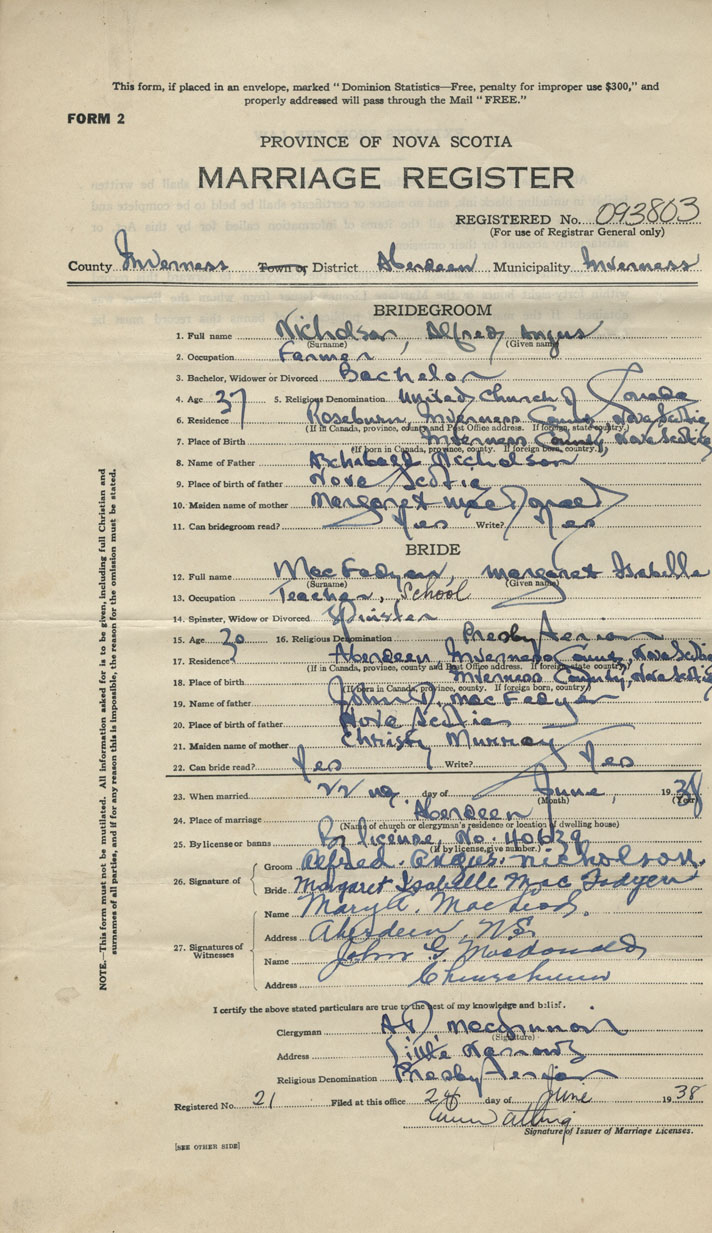 This form, if placed in an envelope, marked "Dominion Statistics—Free, penalty for improper use $300," and
properly addressed will pass through the Mail "FREE."
FORM 2
PROVINCE OF NOVA SCOTIA
MARRIAGE REGISTER
REGISTERED No. 093803
(For use of Registrar General only)
County Inverness Town or District Aberdeen Municipality Inverness
BRIDEGROOM
1. Full name Nicholson, Alfred Angus
(Surname) (Given name)
2. Occupation Farmer
3. Bachelor, Widower or Divorced Bachelor
4. Age 37 5. Religious Denomination United Church of Canada
6. Residence Roseburn, Inverness County, Nova Scotia
(If in Canada, province, county and Post Office address. If foreign, state country.)
7. Place of Birth Inverness County, Nova Scotia
(If born in Canada, province, county. If foreign born, country.)
8. Name of Father Archibald Nicholson
9. Place of birth of father Nova Scotia
10. Maiden name of mother Margaret
11. Can bridegroom read? Yes Write? Yes
BRIDE
12. Full name MacFadyen, Margaret Isabelle
(Surname) (Given name)
13. Occupation Teacher, School
14. Spinster, Widow or Divorced Spinster
15. Age 30 16. Religious Denomination Presbyterian
17. Residence Aberdeen, Inverness County, Nova Scotia
(If in Canada, province, county and Post Office address. If foreign state country)
18. Place of birth Inverness County, Nova Scotia
(If born in Canada, province, county. If foreign born, country)
19. Name of father John D. MacFadyen
20. Place of birth of father Nova Scotia
21. Maiden name of mother Christy Murray
22. Can bride read? Yes Write? Yes
23. When married 22 nd day of June, 1938
(Month) (Year)
24. Place of marriage Aberdeen
(Name of church or clergyman's residence or location of dwelling house)
25. By license or banns By license, No. 40639
(If by license, give number.)
26. Signature of
Groom Alfred. Angus. Nicholson.
Bride Margaret Isabelle MacFadyen
27. Signatures of Witnesses
Name Mary A. MacLeod.
Address Aberdeen, N.S.
Name John G. Macdonald
Address
I certify the above stated particulars are true to the best of my knowledge and belief.
Clergyman A D MacKinnon
(Signature)
Address Little Narrows
Religious Denomination Presbyterian
Registered No. 21 Filed at this office 24 day of June 1938
Signature of Issuer of Marriage Licenses.
[SEE OTHER SIDE]
NOTE.—This form must not be mutilated. All information asked for is to be given, including full Christian and
surnames of all parties, and if for any reason this is impossible, the reason for the omission must be stated.